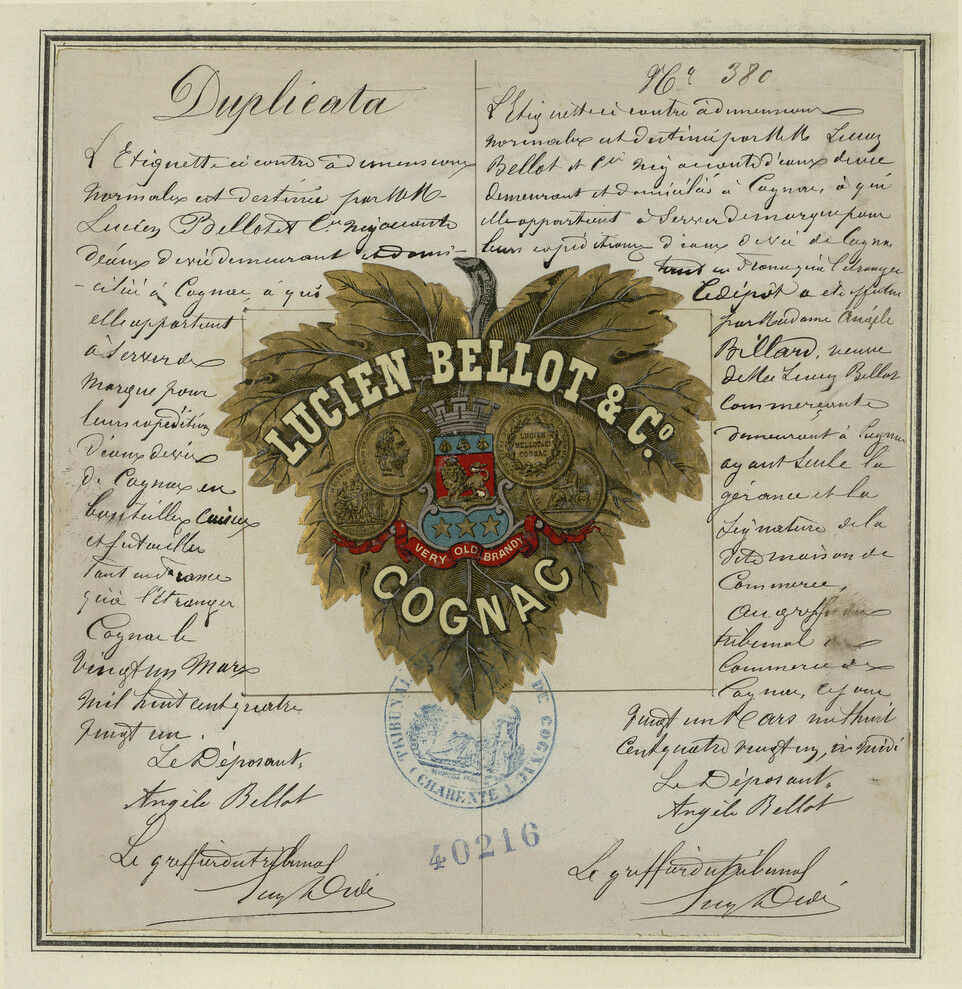 Duplicata
L'Etiquette ci contre à dimensions
normales est destinée par MM.
Lucien Bellot et Cie négociants
d'eaux de vie demeurant et domi-
-cilié à Cognac, à qui
elle appartient
à Servir de
marque pour
leurs expéditions
d'eaux de vie
de Cognac en
bouteilles caisses
et futailles
tant en France
qu'à l'étranger
Cognac le
vingt un Mars
mil huit cent quatre
vingt un.
Le Déposant,
Angèle Bellot
Le greffier du tribunal
380
L'Etiquette ci contre à dimensions
normales est destinée par MM. Lucien
Bellot et Cie négociants d'eaux de vie
demeurant et domiciliés à Cognac, à qui
elle appartient à Servir de marque pour
leurs expéditions d'eaux de vie de Cognac
tant en France qu'à l'étranger
Le dépôt a été effectué
par Madame Angèle
Billard, veuve
de Mr Lucien Bellot
Commerçante
demeurant à Cognac
ayant Seule la
gérance et la
Signature de la
dite maison de
Commerce,
Au greffe du
tribunal de
Commerce de
Cognac, ce jour
vingt un Mars mil huit
Cent quatre vingt un, à midi
Le Déposant,
Angèle Bellot
Le greffier du tribunal
LUCIEN BELLOT & Co.
LUCIEN
BELLOT & Co
COGNAC
VERY OLD BRANDY
COGNAC
TRIBUNAL DE COGNAC
(CHARENTE)
40216